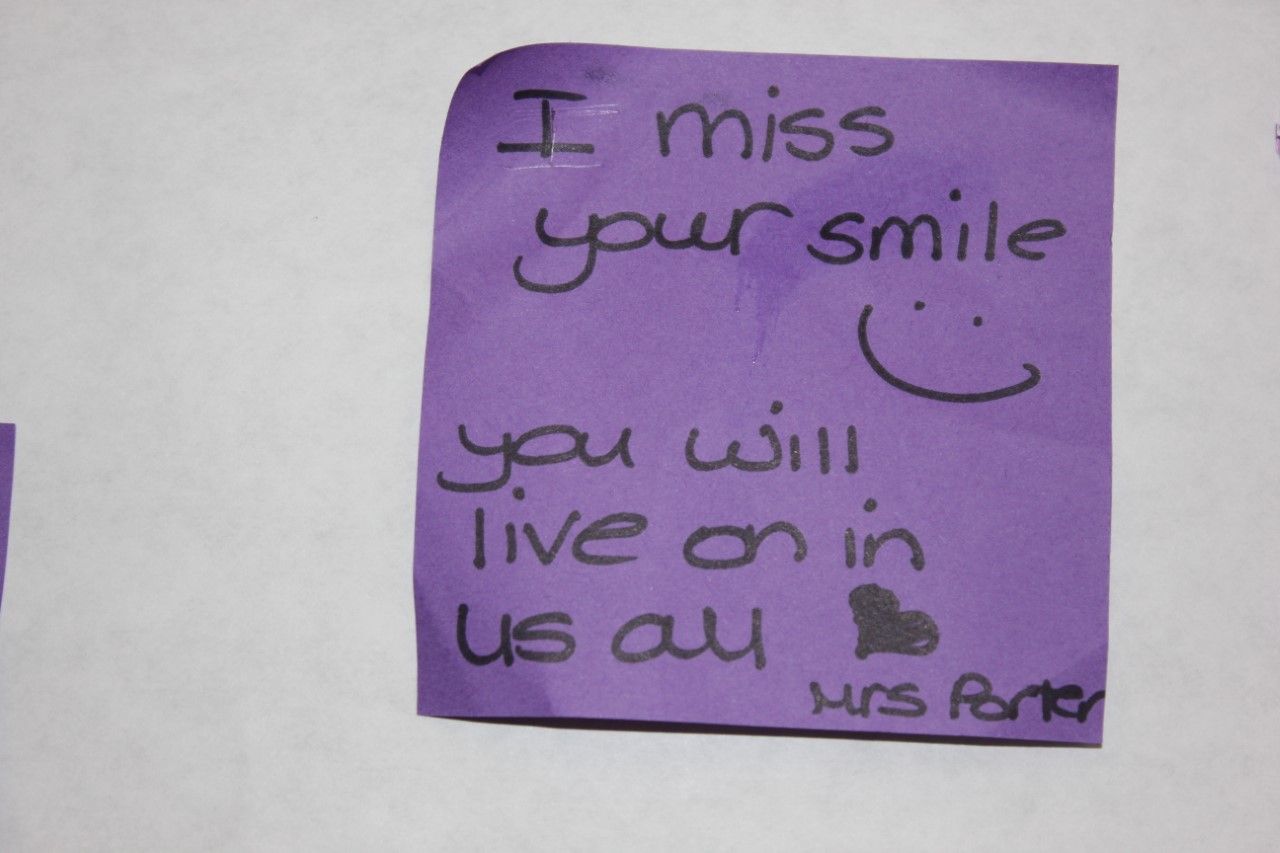 I miss
your smile
you will
live on in
us all
Mrs Porter